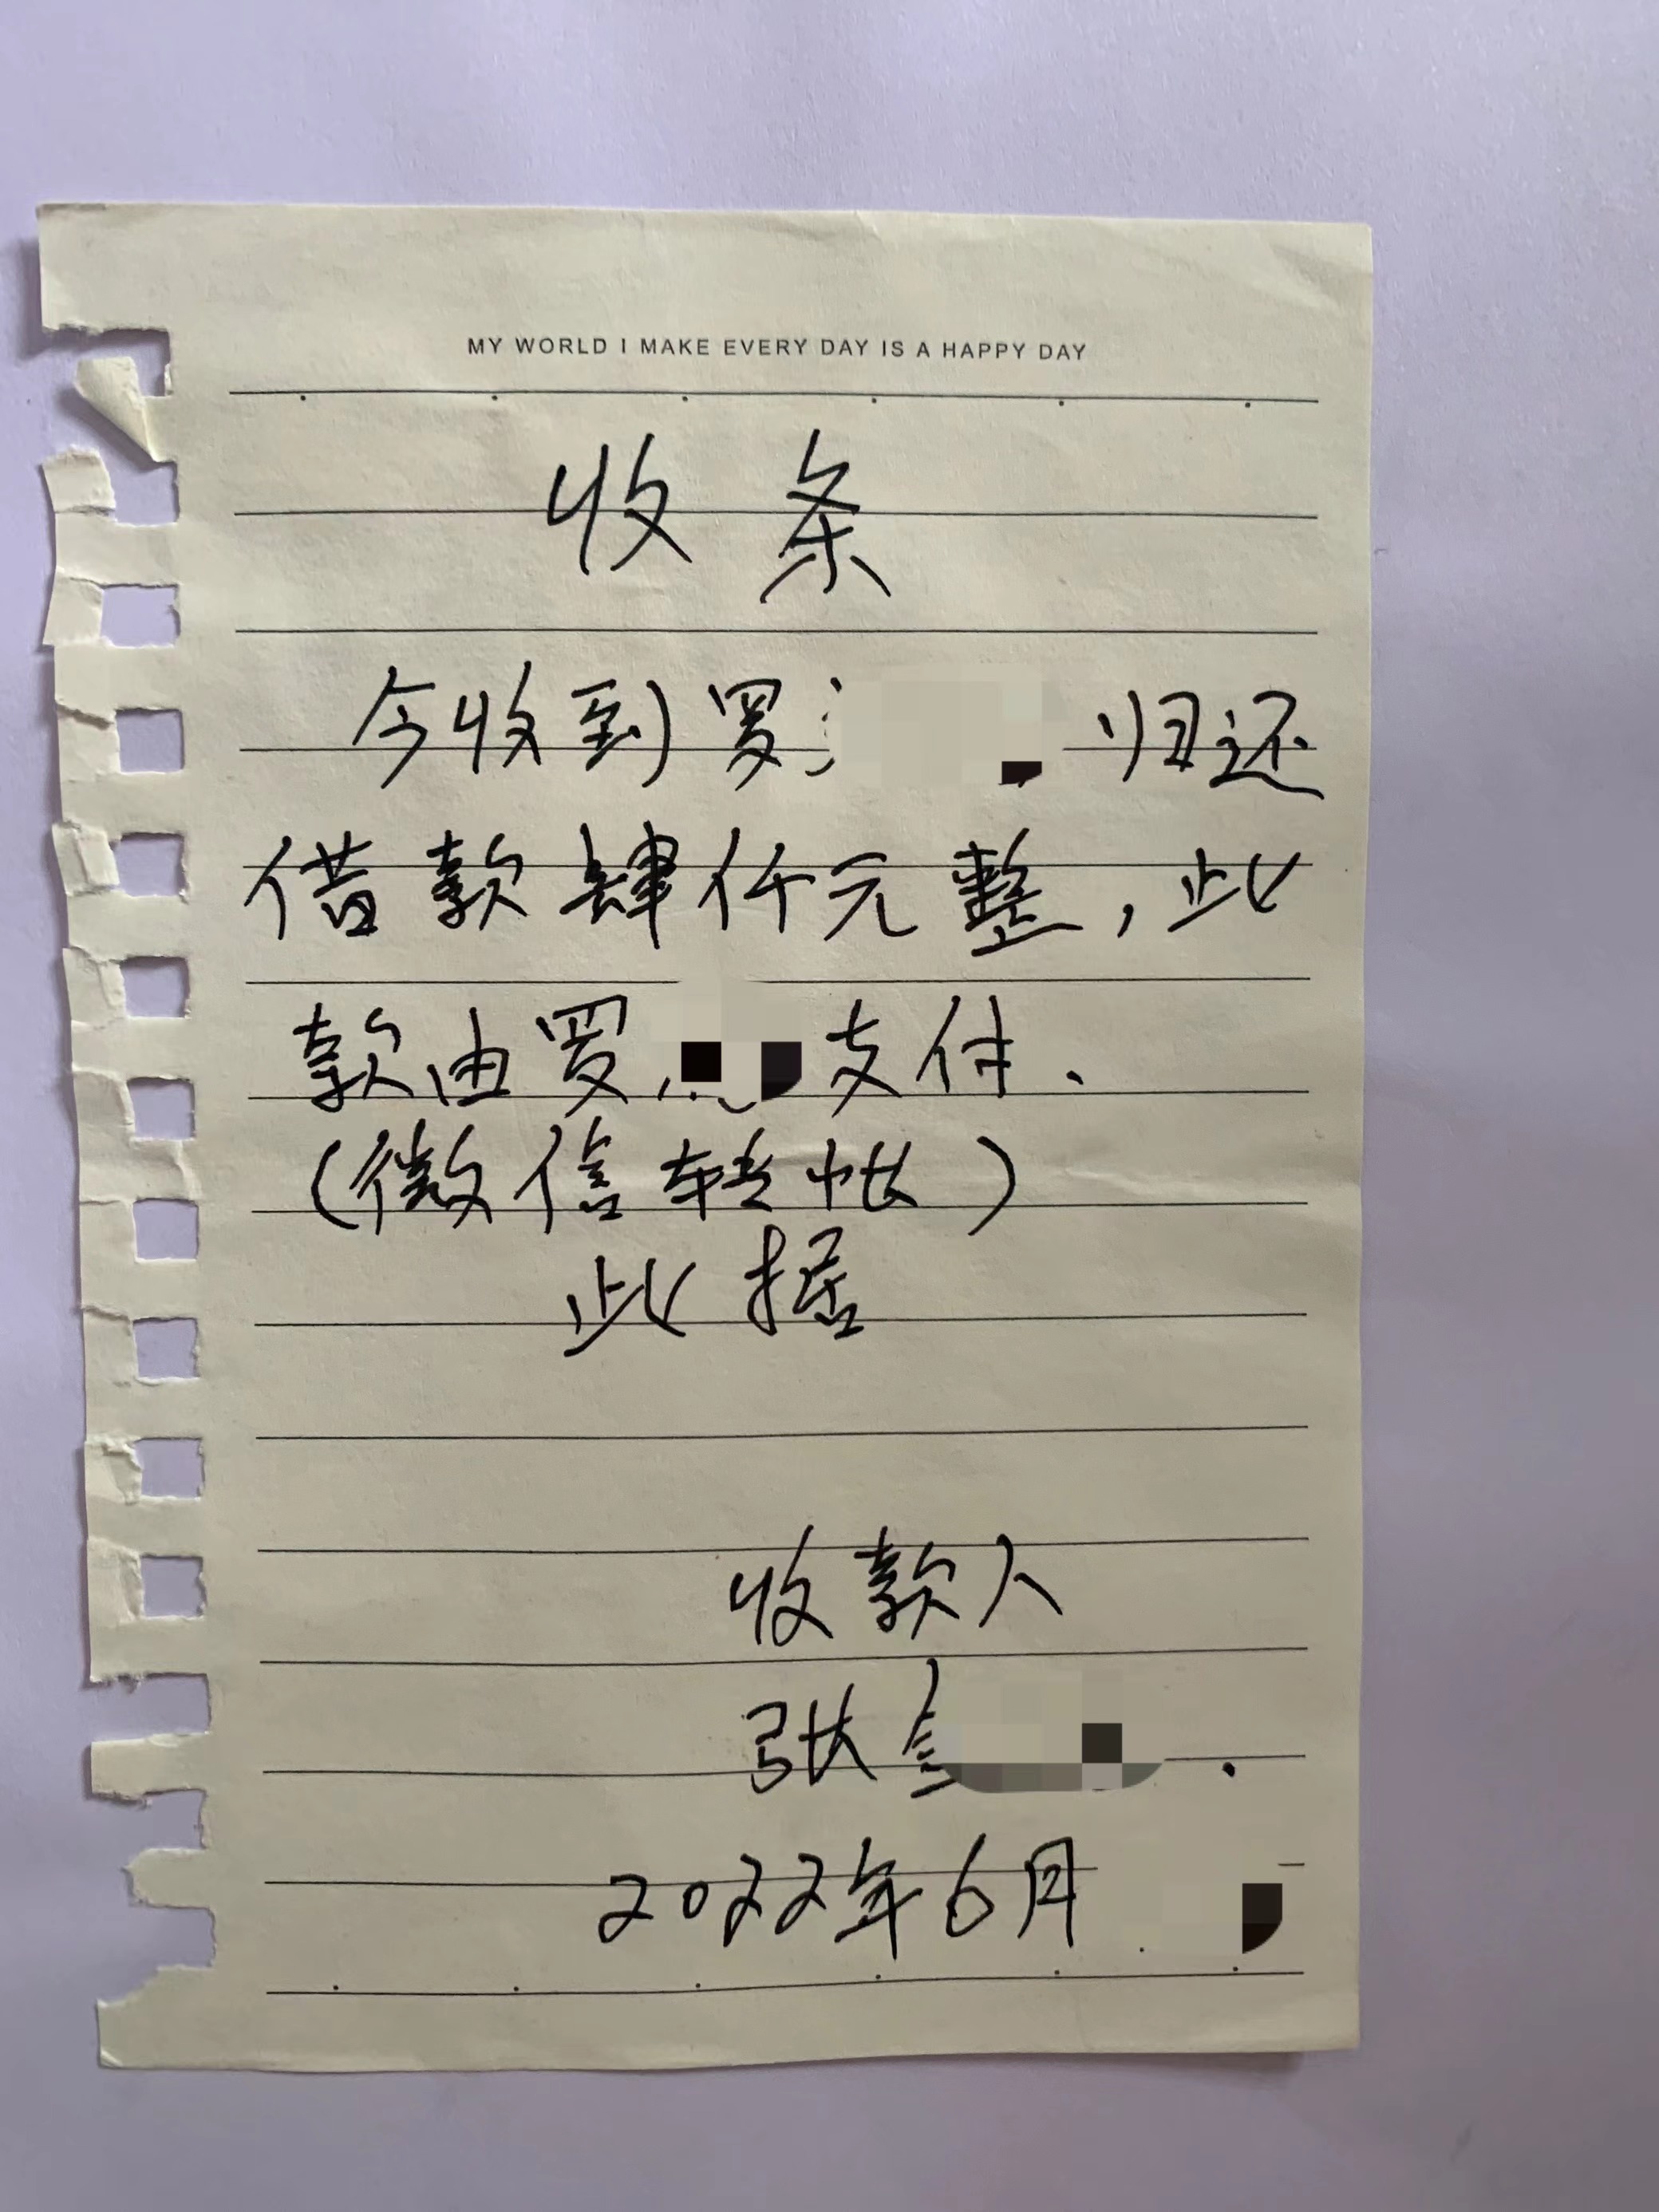 MY WORLD I MAKE EVERY DAY IS A HAPPY DAY
收条
今收到罗 归还
借款肆仟元整，此
款由罗 支付.
（微信转帐）
此据
收款人
张 .
2022年6月